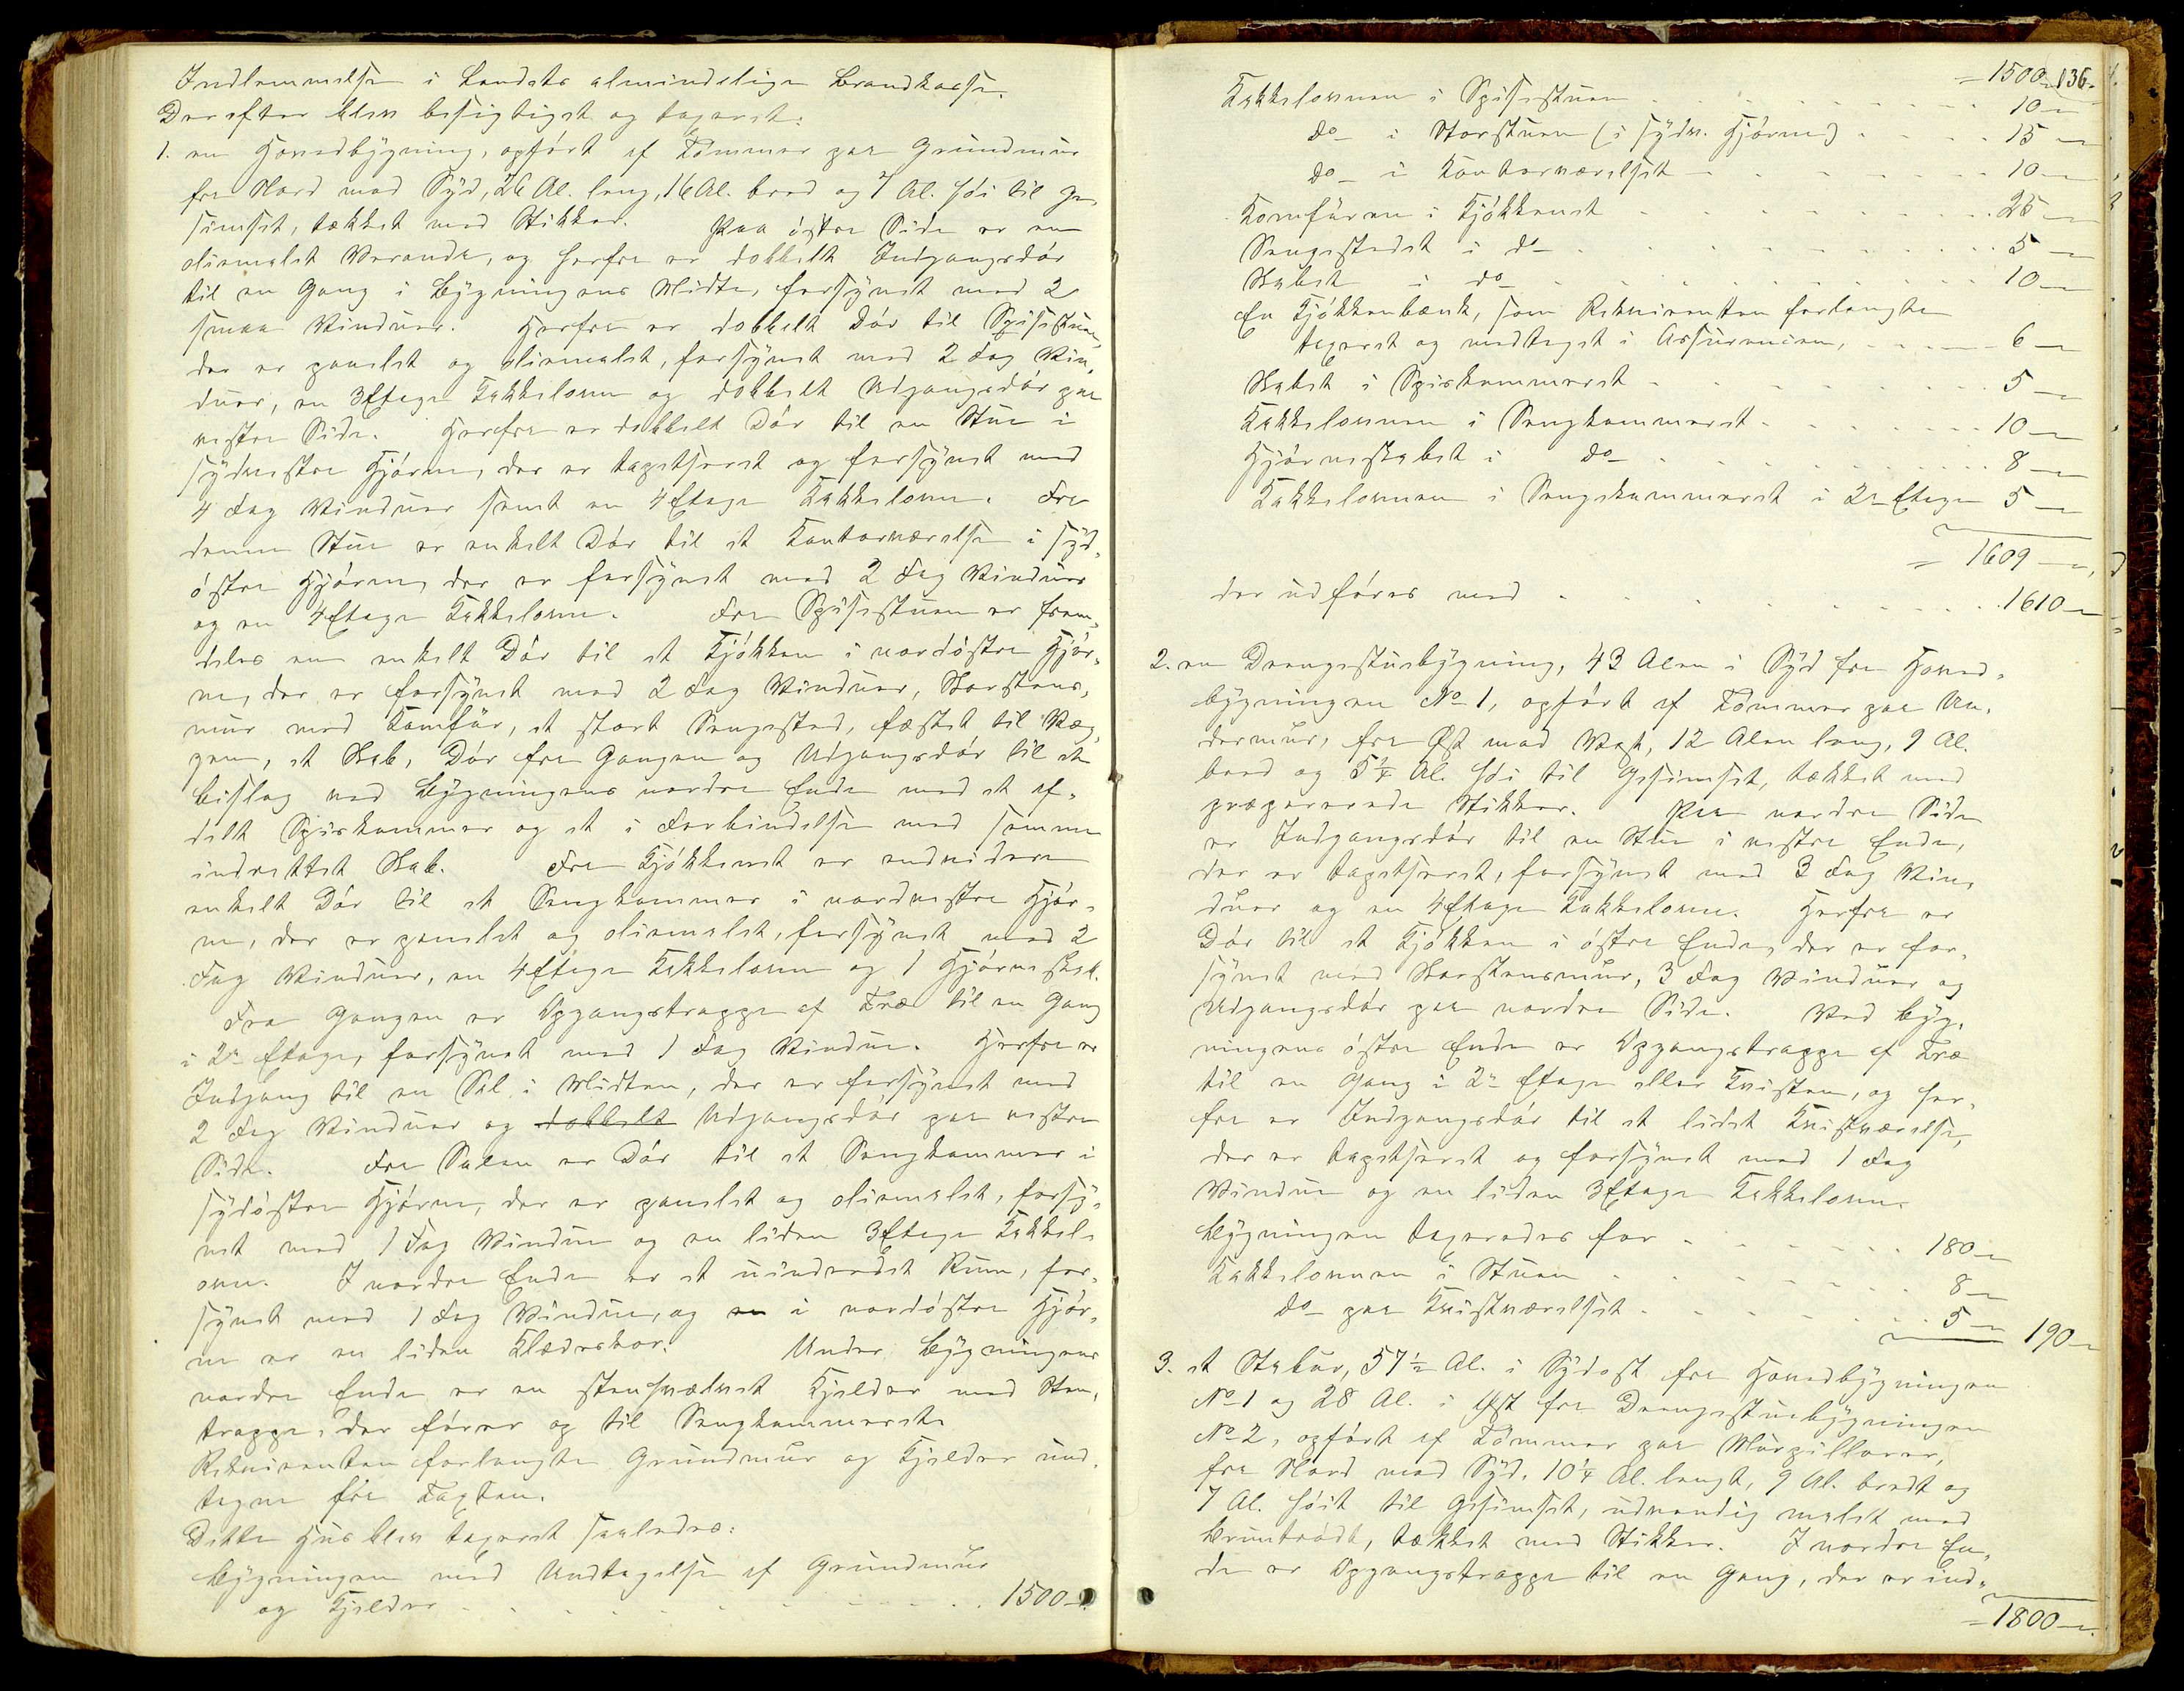 Indlemmelse i Landets almindelige Brandkasse.
Derefter blev besigtiget og taxeret:
1. en Hovedbygning, opført af Tømmer paa Grundmur
fra Nord mod Syd, 26 Al. lang, 16 Al. bred og 7 Al. høi til Ge-
simset, tækket med Stikker. Paa østre Side er en
oliemalet Veranda, og herfra er dobbelt Indgangsdør
til en Gang i Bygningens Midte, forsynet med 2
smaa Vinduer. Herfra er dobbelt Dør til Spisestuen,
der er panelet og oliemalet, forsynet med 2 Fag Vin-
duer, en 3Etages Kakkelovn og dobbelt Udgangsdør paa
vestre Side. Herfra er dobbelt Dør til en Stue i
sydvestre Hjørne, der er tapetseret og forsynet med
4 Fag Vinduer samt en 4Etages Kakkelovn. Fra
denne Stue er enkelt Dør til et Kontorværelse i syd-
østre Hjørne, der er forsynet med 2 Fag Vinduer
og en 4Etages Kakkelovn. Fra Spisestuen er frem-
deles en enkelt Dør til et Kjøkken i nordøstre Hjør-
ne, der er forsynet med 2 Fag Vinduer, Skorstens-
mur med Komfur, et stort Sengested, fæstet til Væg-
gen, et Skab, Dør fra Gangen og Udgangsdør til et
Bislag ved Bygningens nordre Ende med et af-
delt Spiskammer og et i Forbindelse med samme
indrettet Skab. Fra Kjøkkenet er endvidere
enkelt Dør til et Sengkammer i nordvestre Hjør-
ne, der er panelet og oliemalet, forsynet med 2
Fag Vinduer, en 4Etages Kakkelovn og 1 Hjørneskab.
Fra Gangen er Opgangstrappe af Træ til en Gang
i 2n Etage, forsynet med 1 Fag Vindue. Herfra er
Indgang til en Sal i Midten, der er forsynet med
2 Fag Vinduer og dobbelt Udgangsdør paa vestre
Side. Fra Salen er Dør til et Sengkammer i
sydøstre Hjørne, der er panelet og oliemalet, forsy-
net med 1 Fag Vindue og en liden 3Etages Kakkel-
ovn. I nordre Ende er et uindredet Rum, for-
synet med 1 Fag Vindue, og en i nordøstre Hjør-
ne er en liden Klædesbor. Under Bygningens
nordre Ende er en stenhvælvet Kjelder med Sten-
trappe, der fører op til Sengkammerset.
Rekvirenten forlangte Grundmur og Kjelder und-
tagne fra Taxten.
Dette Hus blev taxeret saaledes:
Bygningen med Undtagelse af Grundmur
og Kjelder . . . . . . . . 1500 -
= 1500 - 136.
Kakkelovnen i Spisestuen . . . . . . . 10 -
do - i Storstuen (i sydv. Hjørne) . . . . 15 -
do - i Kontorværelset . . . . . . 10 -
Komfuren i Kjøkkenet . . . . . . . 25 -
Sengestedet i do - . . . . . . . 5 -
Skabet i do - . . . . . . . 10 -
En Kjøkkenbænk, som Rekvirenten forlangte
taxeret og medtaget i Assurancen, . . . . 6 -
Skabet i Spiskammeret . . . . . . . 5 -
Kakkelovnen i Sengkammeret . . . . . . 10 -
Hjørneskabet i do - . . . . . . 8 -
Kakkelovnen i Sengekammeret i 2n Etage 5 -
= 1609 -
der udføres med . . . . . . . 1610 -
2. en Drengestuebygning, 43 Alen i Syd fra Hoved-
bygningen No 1, opført af Tømmer paa Un-
dermur, fra Øst mod Vest, 12 Alen lang, 9 Al.
bred og 5 1/4 Al. høi til Gesimset, tækket med
præparerede Stikker. Paa nordre Side
er Indgangsdør til en Stue i vestre Ende,
der er tapetseret, forsynet med 3 Fag Vin-
duer og en 4Etages Kakkelovn. Herfra er
Dør til et Kjøkken i østre Ende, der er for-
synet med Skorstensmur, 3 Fag Vinduer og
Udgangsdør paa nordre Side. Ved Byg-
ningens østre Ende er Opgangstrappe af Træ
til en Gang i 2n Etage eller Kvisten, og her-
fra er Indgangsdør til et lidet Kvistværelse,
der er tapetseret og forsynet med 1 Fag
Vindue og en liden 3Etages Kakkelovn.
Bygningen taxeredes for . . . . . . 180 -
Kakkelovnen i Stuen . . . . . . 8 -
do - paa Kvistværelset . . . . . . 5 - 190 -
3. et Stabur, 57 1/2 Al. i Sydost fra Hovedbygningen
No 1 og 28 Al. i Øst fra Drengestuebygningen
No 2, opført af Tømmer paa Murpillarer,
fra Nord mod Syd, 10 1/4 Al. langt, 9 Al. bredt og
7 Al. høit til Gesimset, udvendig malet med
Bruntrødt, tækket med Stikker. I nordre En-
de er Opgangstrappe til en Gang, der er ind-
= 1800 -